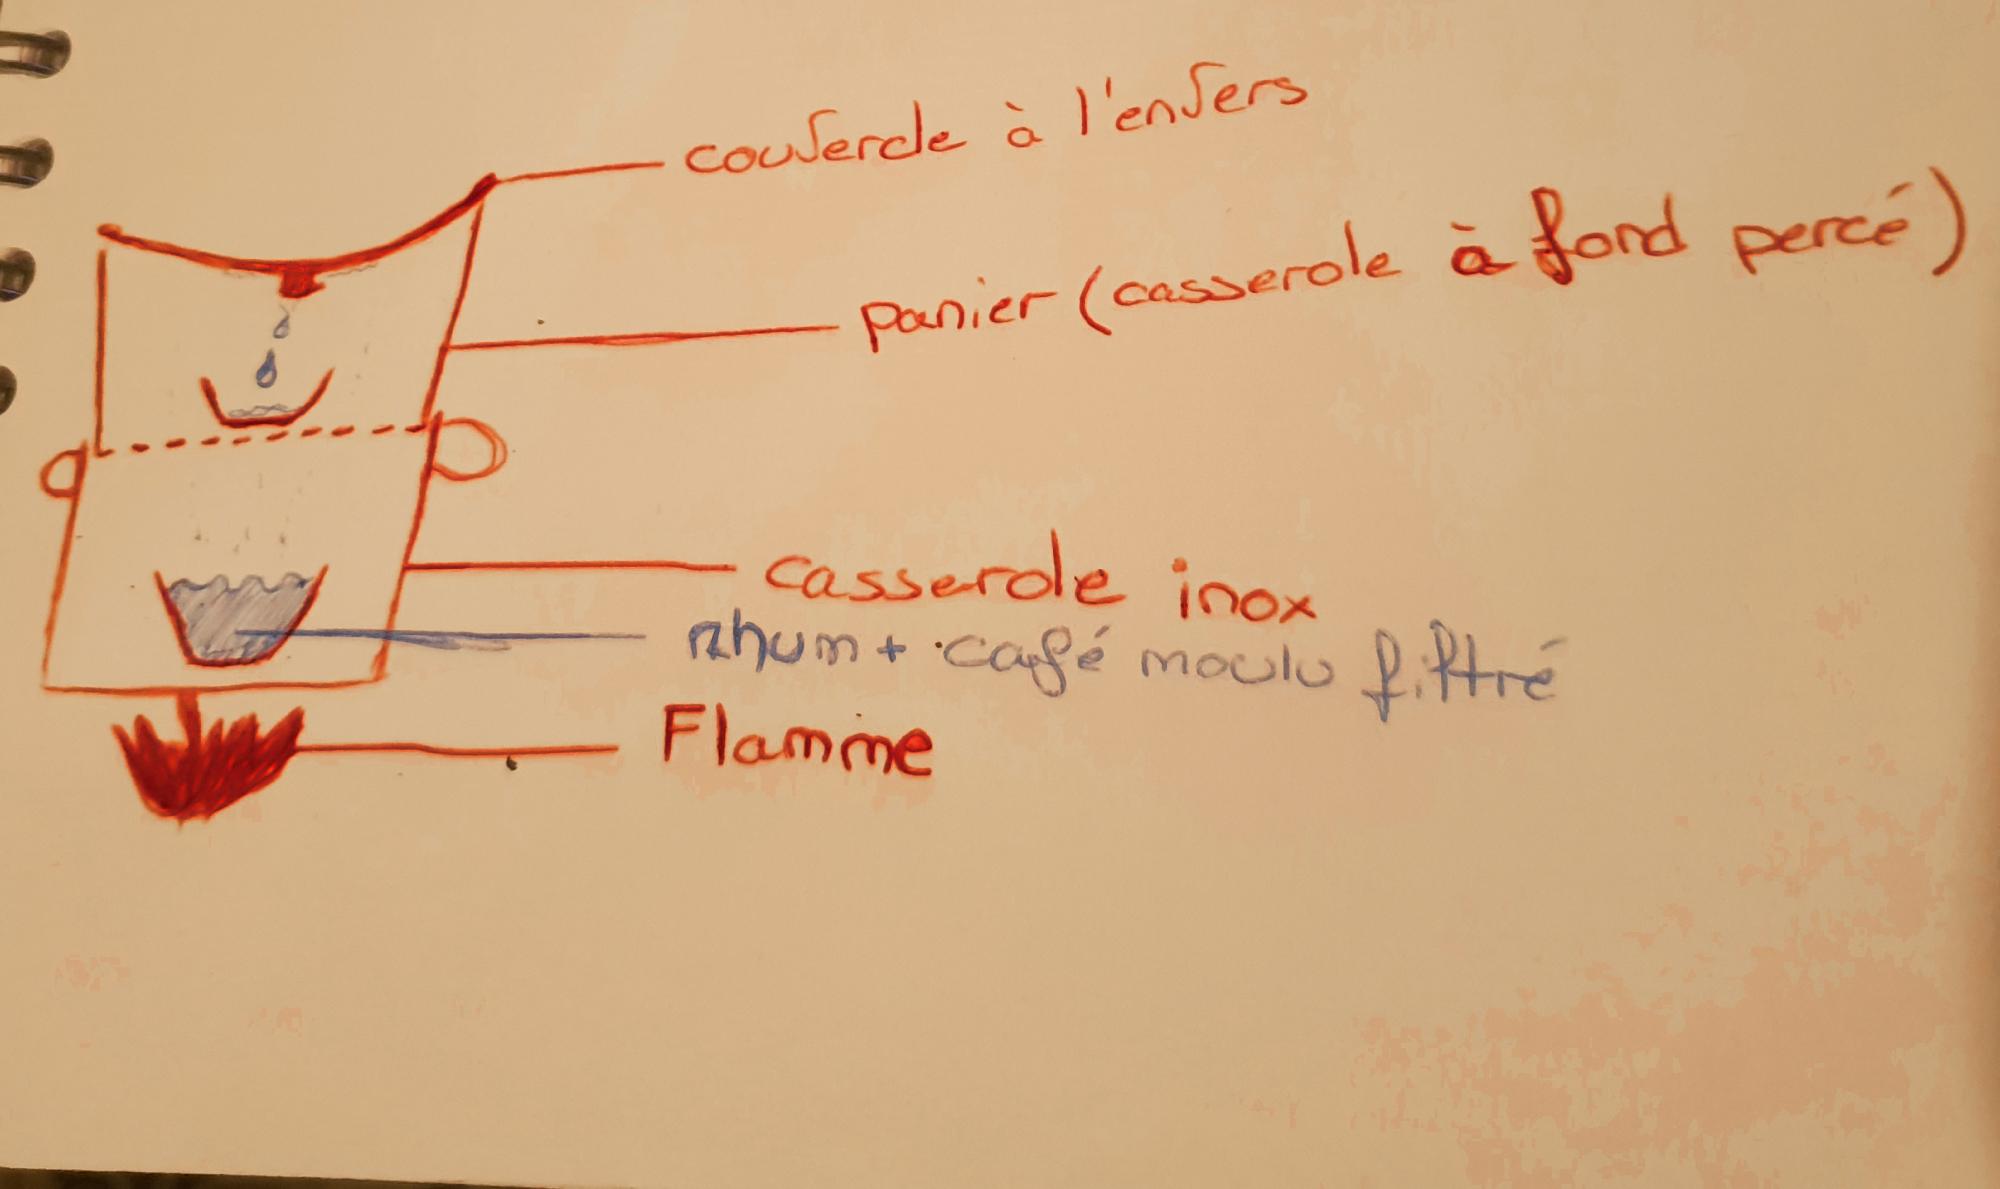 couvercle à l'envers
panier (casserole à fond percé)
casserole inox
Rhum + café moulu filtré
Flamme